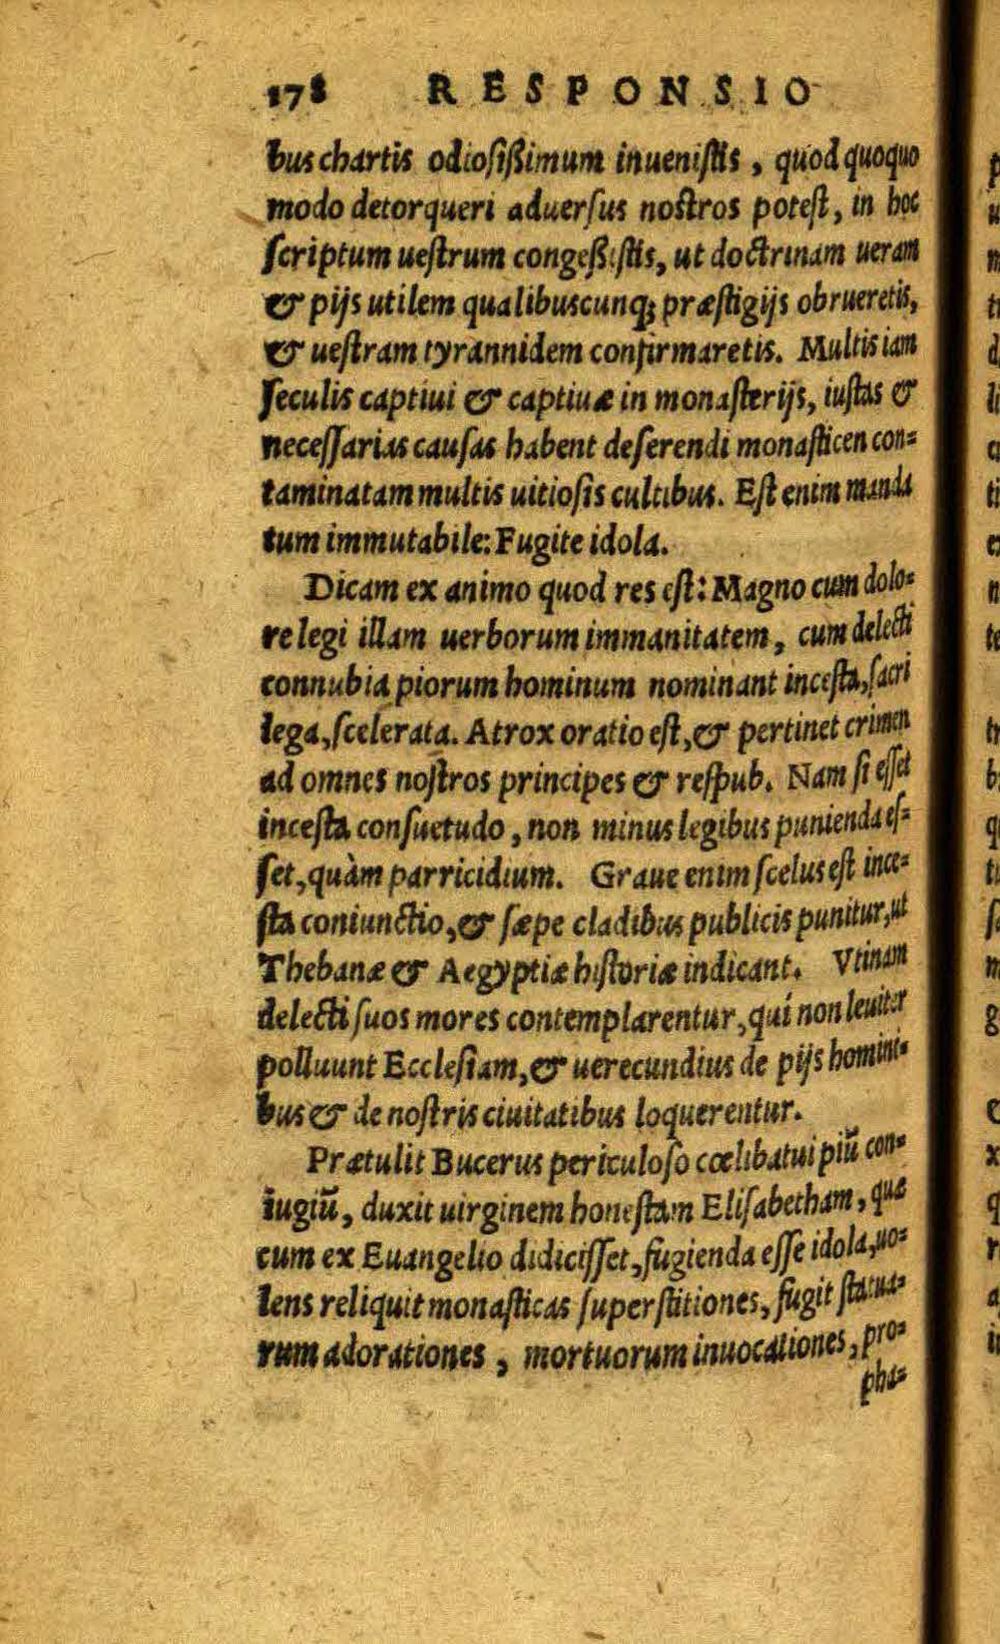 178 RESPONSIO
bus chartis odiosißimum inuenistis, quod quoquo
modo detorqueri aduersus nostros potest, in hoc
scriptum uestrum congeßistis, ut doctrinam ueram
& pijs utilem qualibuscunq; præstigijs obrueretis,
& uestram tyrannidem confirmaretis. Multis iam
seculis captiui & captiuæ in monasterijs, iustas &
necessarias causas habent deserendi monasticen con=
taminatam multis uitiosis cultibus. Est enim manda
tum immutabile: Fugite idola.
Dicam ex animo quod res est: Magno cum dolo=
re legi illam uerborum immanitatem, cum delecti
connubia piorum hominum nominant incesta, sacri
lega, scelerata. Atrox oratio est, & pertinet crimen
ad omnes nostros principes & respub. Nam si esset
incesta consuetudo, non minus legibus punienda es=
set, quàm parricidium. Graue enim scelus est ince=
sta coniunctio, & sæpe cladibus publicis punitur, ut
Thebanæ & Aegyptiæ historiæ indicant. Vtinam
delecti suos mores contemplarentur, qui non leuiter
polluunt Ecclesiam, & uerecundius de pijs homini=
bus & de nostris ciuitatibus loquerentur.
Prætulit Bucerus periculoso cœlibatui piũ con=
iugiũ, duxit uirginem honestam Elisabetham, quæ
cum ex Euangelio didicisset, fugienda esse idola, uo=
lens reliquit monasticas superstitiones, fugit statua=
rum adorationes, mortuorum inuocationes, pro=
pha=